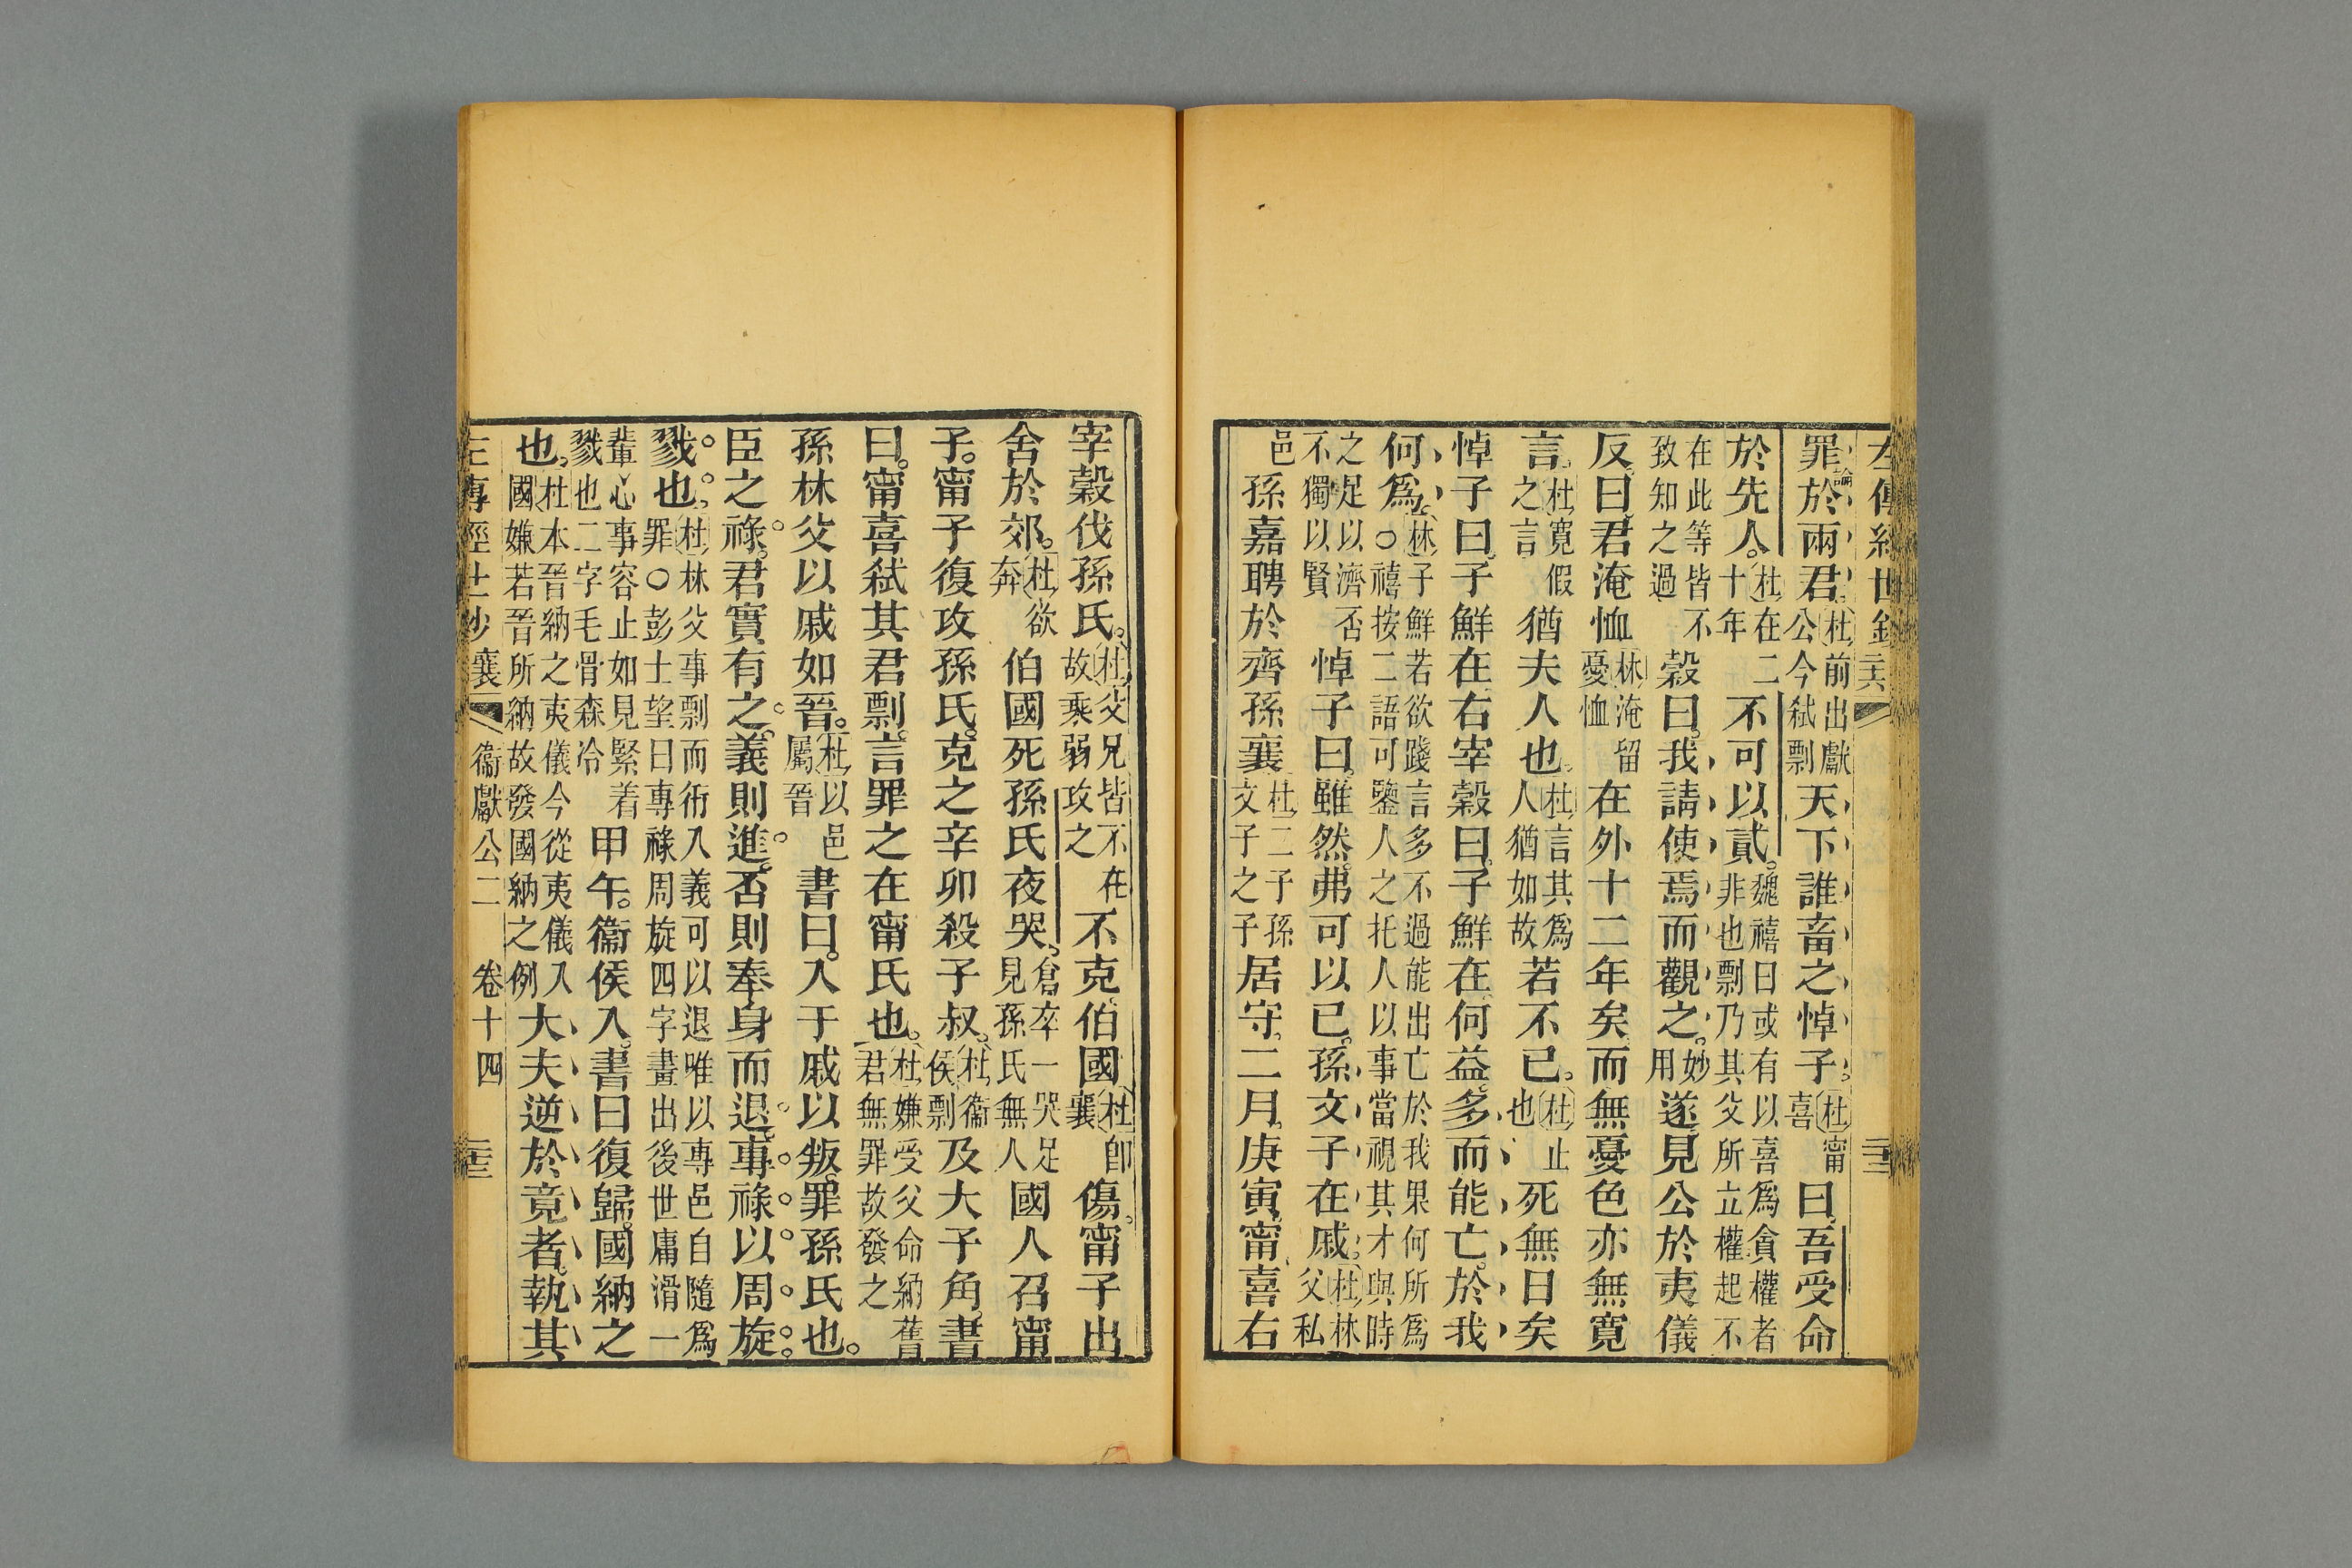 左傳經世鈔 襄
罪於兩君杜前出獻公今弑剽天下誰畜之悼子杜甯喜曰吾受命
於先人杜在二十年不可以貳魏禧曰或有以喜為貪權者非也剽乃其父所立權起不
在此等皆不致知之過穀曰我請使焉而觀之妙用遂見公於夷儀
反曰君淹恤林淹留憂恤在外十二年矣而無憂色亦無寬
言杜寬假之言猶夫人也杜言其為人猶如故若不已杜止也死無日矣
悼子曰子鮮在右宰穀曰子鮮在何益多而能亡於我
何為林子鮮若欲踐言多不過能出亡於我果何所為○禧按二語可鑒人之托人以事當視其才與時
之足以濟否不獨以賢悼子曰雖然弗可以已孫文子在戚杜林父私
邑孫嘉聘於齊孫襄杜二子孫文子之子居守二月庚寅甯喜右
宰穀伐孫氏杜父兄皆不在故乘弱攻之不克伯國杜卽襄傷甯子出
舍於郊杜欲奔伯國死孫氏夜哭倉卒一哭足見孫氏無人國人召甯
子甯子復攻孫氏克之辛卯殺子叔杜衞侯剽及大子角書
曰甯喜弑其君剽言罪之在甯氏也杜嫌受父命納舊君無罪故發之
孫林父以戚如晉杜以邑屬晉書曰入于戚以叛罪孫氏也
臣之祿君實有之義則進否則奉身而退專祿以周旋
戮也杜林父事剽而衎入義可以退唯以專邑自隨為罪○彭士望曰專祿周旋四字畫出後世庸滑一
輩心事容止如見緊着戮也二字毛骨森冷甲午衞侯入書曰復歸國納之
也杜本晉納之夷儀今從夷儀入國嫌若晉所納故發國納之例大夫逆於竟者執其
左傳經世鈔 襄 衞獻公二 卷十四 三十三